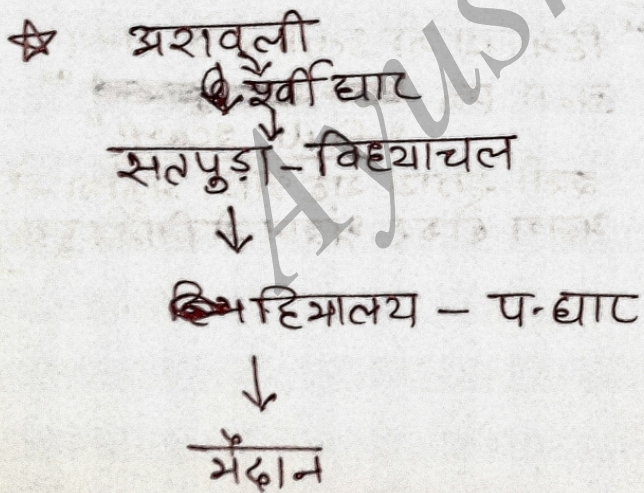 ☆ अरावली
↓ पूर्वी घाट
↓
सतपुड़ा - विंध्याचल
↓
हिमालय - प. घाट
↓
मैदान
Ayus